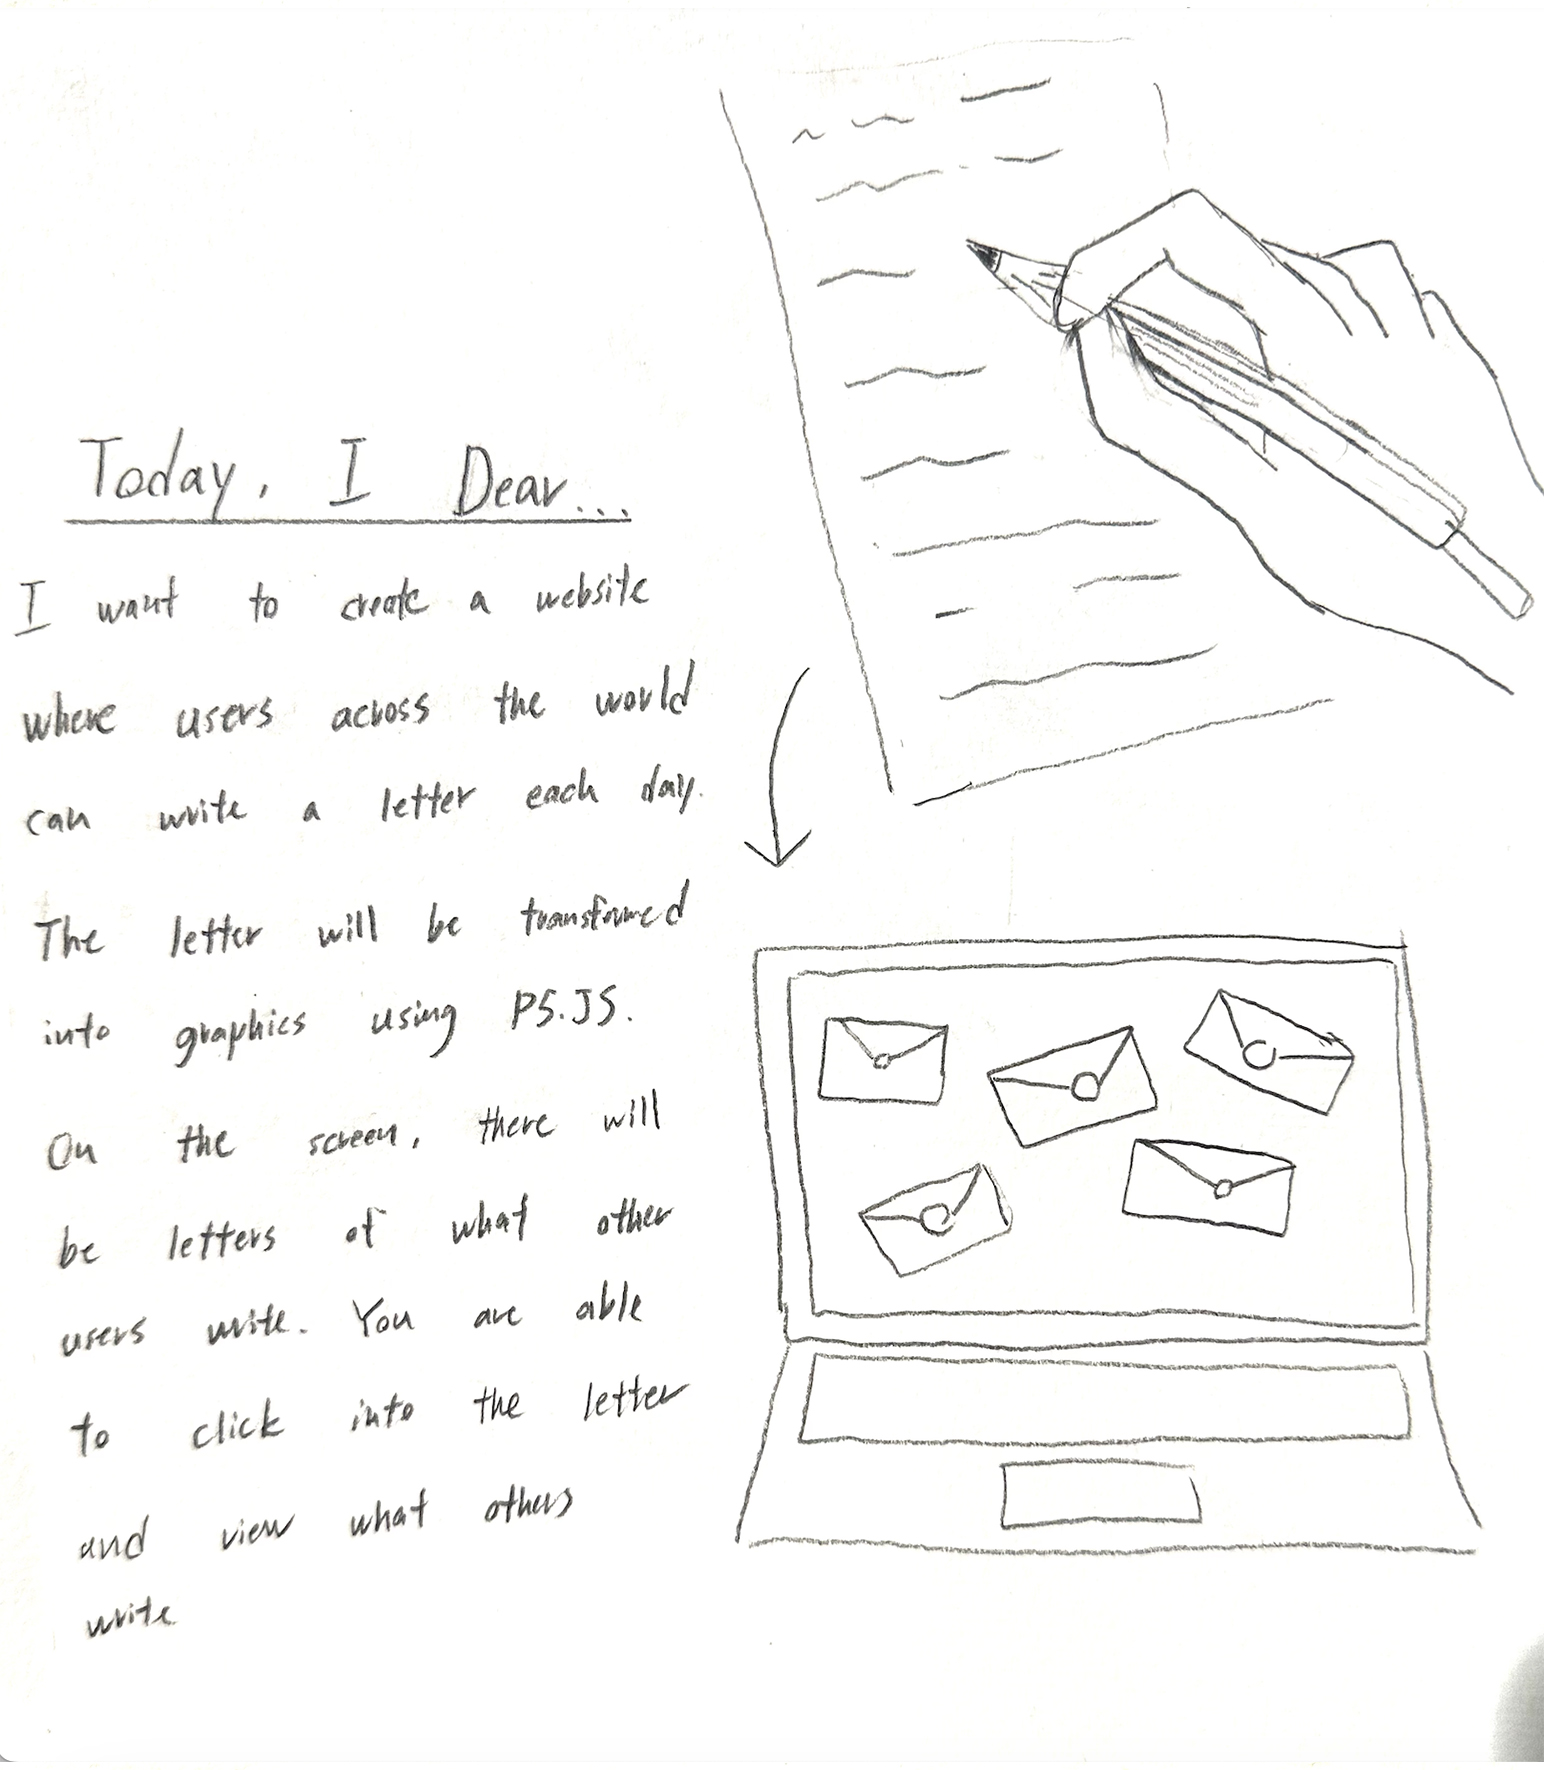 Today, I Dear...
I want to create a website
where users across the world
can write a letter each day.
The letter will be transformed
into graphics using P5.JS.
On the screen, there will
be letters of what other
users write. You are able
to click into the letter
and view what others
write